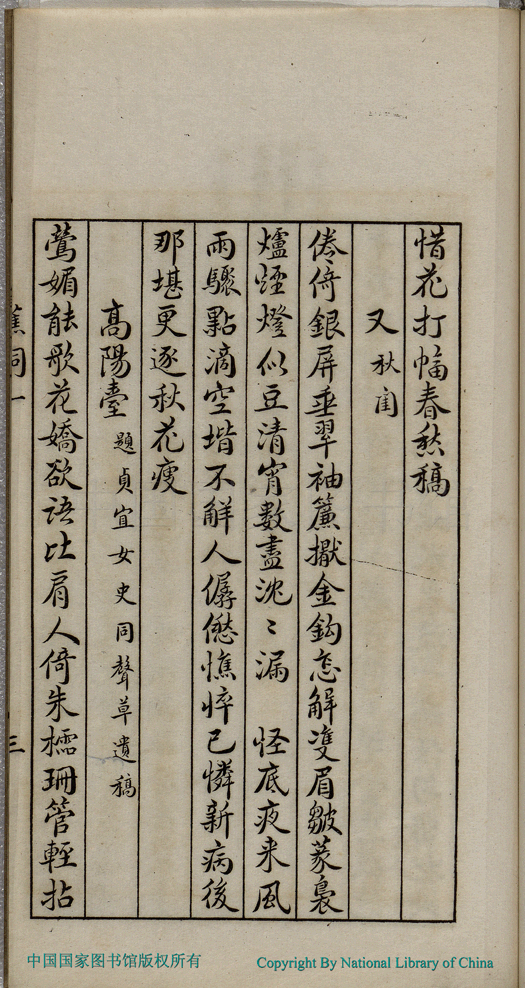 惜花打幅春愁稿
又 秋闺
倦倚銀屏垂翠袖簾撳金鈎怎解雙眉皺篆裊
爐煙燈似豆清宵數盡沈〻漏　怪底夜来風
雨驟點滴空堦不解人僝僽憔悴已憐新病後
那堪更逐秋花瘦
高陽臺 題貞宜女史同聲草遺稿
鶯媚能歌花嬌欲語比肩人倚朱櫺珊管輕拈
蕉詞一
三
中国国家图书馆版权所有
Copyright By National Library of China